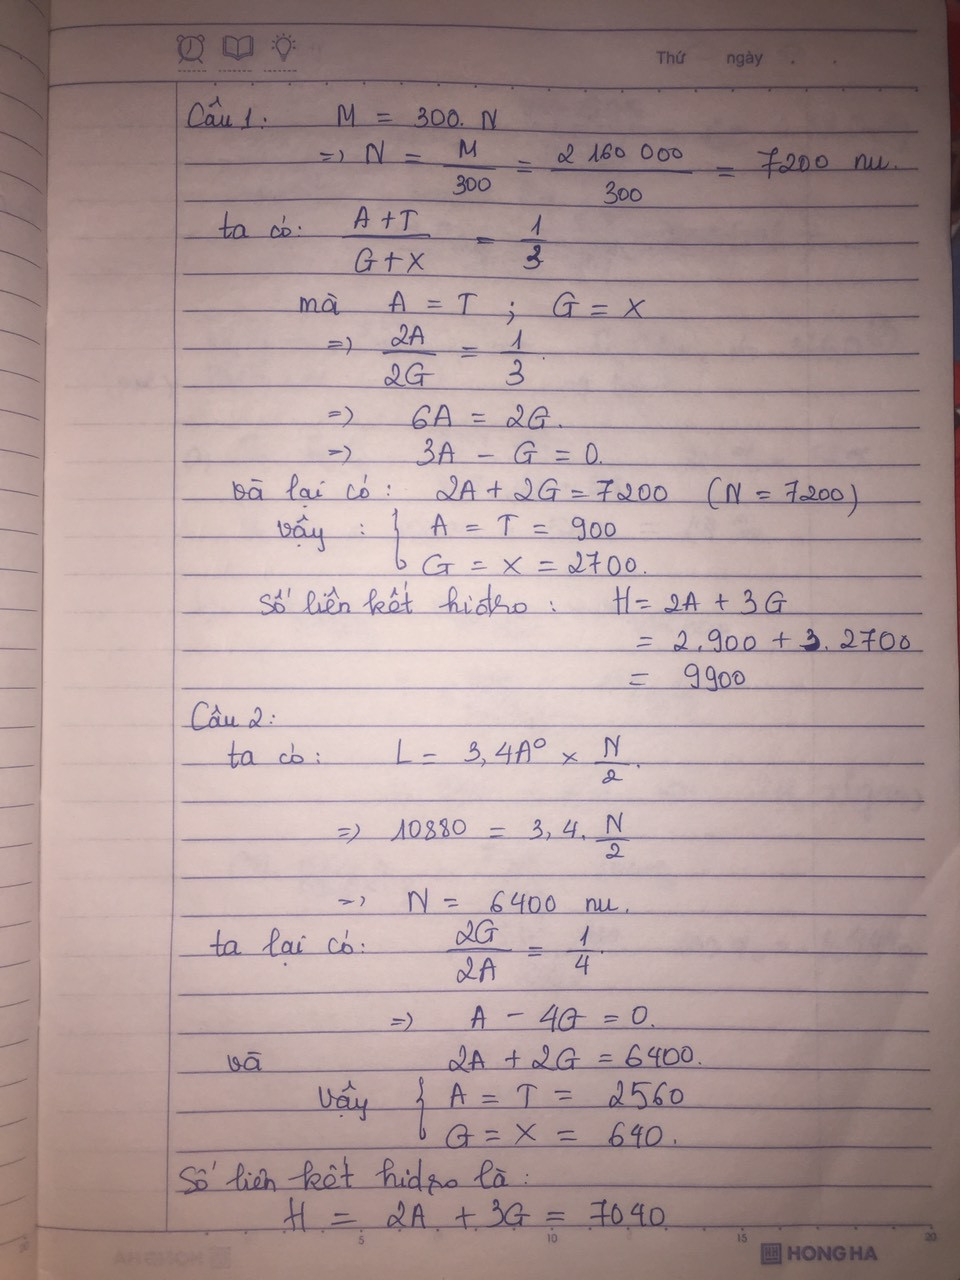 Thứ ngày . .
Câu 1: M = 300. N
=> N = M/300 = 2 160 000/300 = 7200 nu.
ta có: A+T/G+X = 1/3
mà A = T ; G = X
=> 2A/2G = 1/3.
=> 6A = 2G.
=> 3A - G = 0.
và lại có: 2A + 2G = 7200 (N = 7200)
vậy : { A = T = 900
G = X = 2700.
Số liên kết hidro : H = 2A + 3G
= 2.900 + 3.2700
= 9900
Câu 2:
ta có: L = 3,4A° × N/2.
=> 10880 = 3,4. N/2
=> N = 6400 nu.
ta lại có: 2G/2A = 1/4.
=> A - 4G = 0.
và 2A + 2G = 6400.
Vậy { A = T = 2560
G = X = 640.
Số liên kết hidro là:
H = 2A + 3G = 7040
5 10 15 20
HONG HA